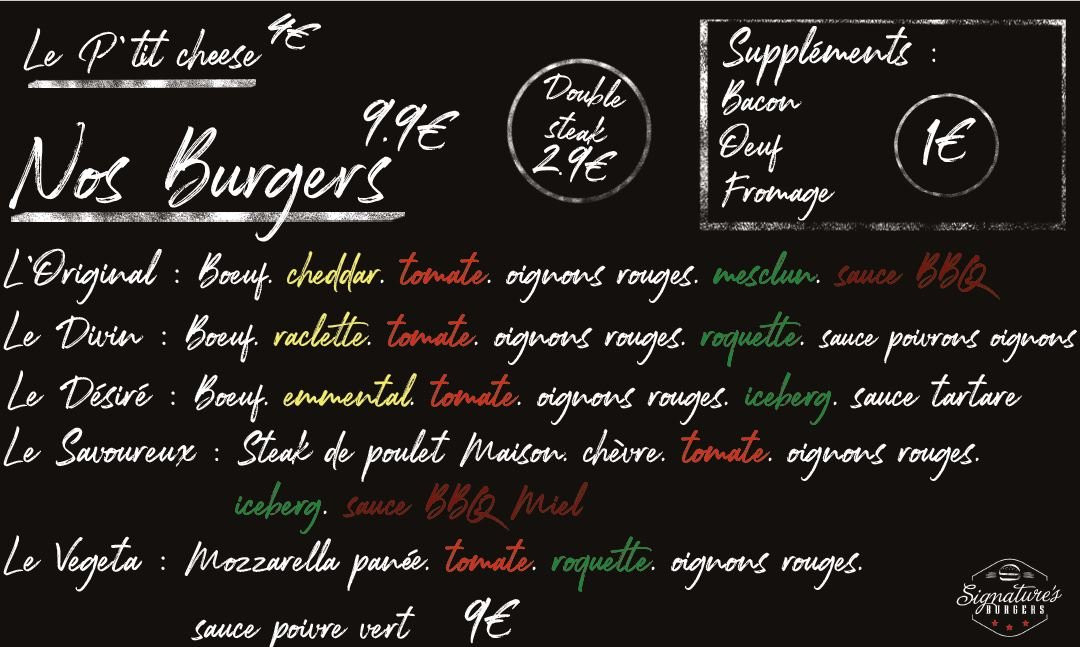 Le P'tit cheese 4€
Nos Burgers 9.9€
Double
steak
2.9€
Suppléments :
Bacon
Oeuf
Fromage
1€
L'Original : Boeuf. cheddar. tomate. oignons rouges. mesclun. sauce BBQ
Le Divin : Boeuf. raclette. tomate. oignons rouges. roquette. sauce poivrons oignons
Le Désiré : Boeuf. emmental. tomate. oignons rouges. iceberg. sauce tartare
Le Savoureux : Steak de poulet Maison. chèvre. tomate. oignons rouges.
iceberg. sauce BBQ Miel
Le Vegeta : Mozzarella panée. tomate. roquette. oignons rouges.
sauce poivre vert 9€
Signature's
BURGERS